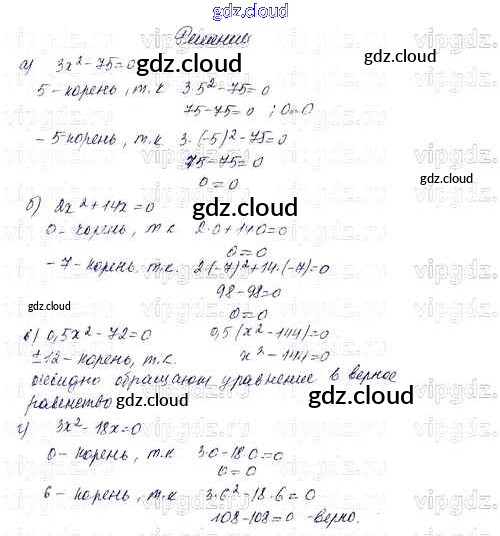 gdz.cloud
Решение
а) 3x² - 75 = 0
gdz.cloud
5 - корень, т.к 3·5² - 75 = 0
75 - 75 = 0 ; 0 = 0
gdz.cloud
- 5 корень, т.к 3·(-5)² - 75 = 0
75 - 75 = 0
0 = 0
gdz.cloud
б) 2x² + 14x = 0
gdz.cloud
0 - корень, т.к 2·0 + 14·0 = 0
0 = 0
- 7 - корень, т.к. 2(-7)² + 14·(-7) = 0
98 - 98 = 0
0 = 0
gdz.cloud
gdz.cloud
в) 0,5x² - 72 = 0 0,5(x² - 144) = 0
± 12 - корень, т.к. x² - 144 = 0
очевидно обращают уравнение в верное
равенство
gdz.cloud
gdz.cloud
г) 3x² - 18x = 0
0 - корень, т.к 3·0 - 18·0 = 0
0 = 0
gdz.cloud
6 - корень, т.к 3·6² - 18·6 = 0
108 - 108 = 0 - верно.